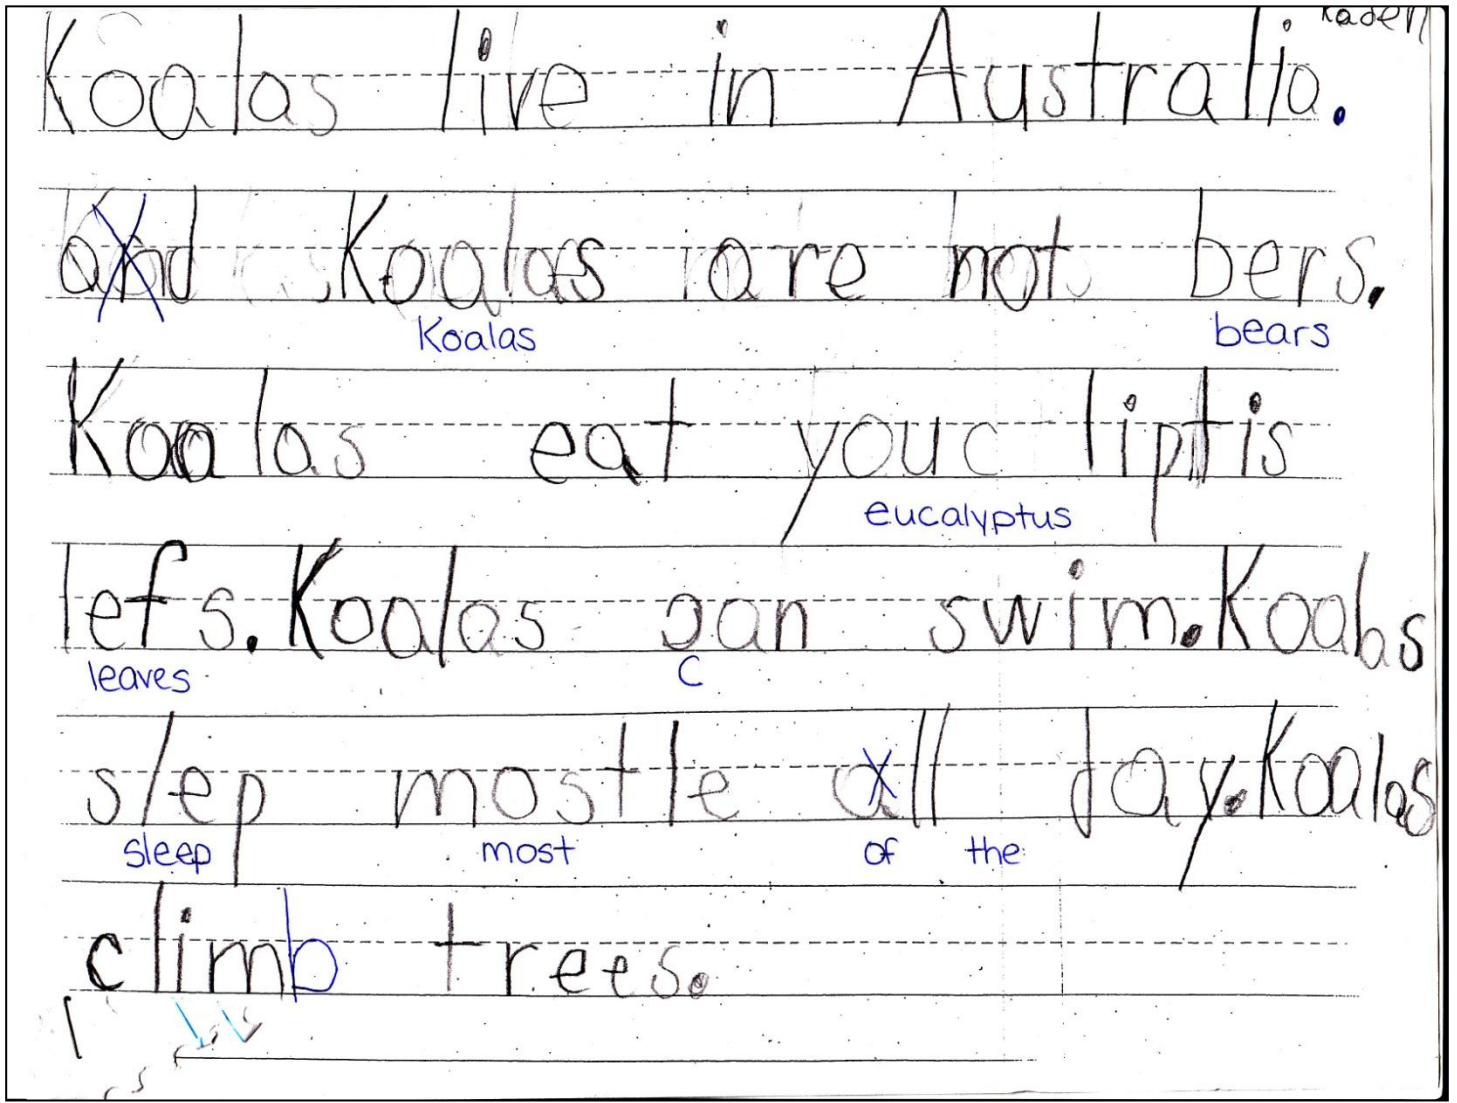 Kaden
Koalas live in Australia.
and Koalas are not bers.
Koalas bears
Koalas eat youc liptis
eucalyptus
lefs. Koalas can swim. Koalas
leaves c
slep mostle all day. Koalas
sleep most of the
climb trees.